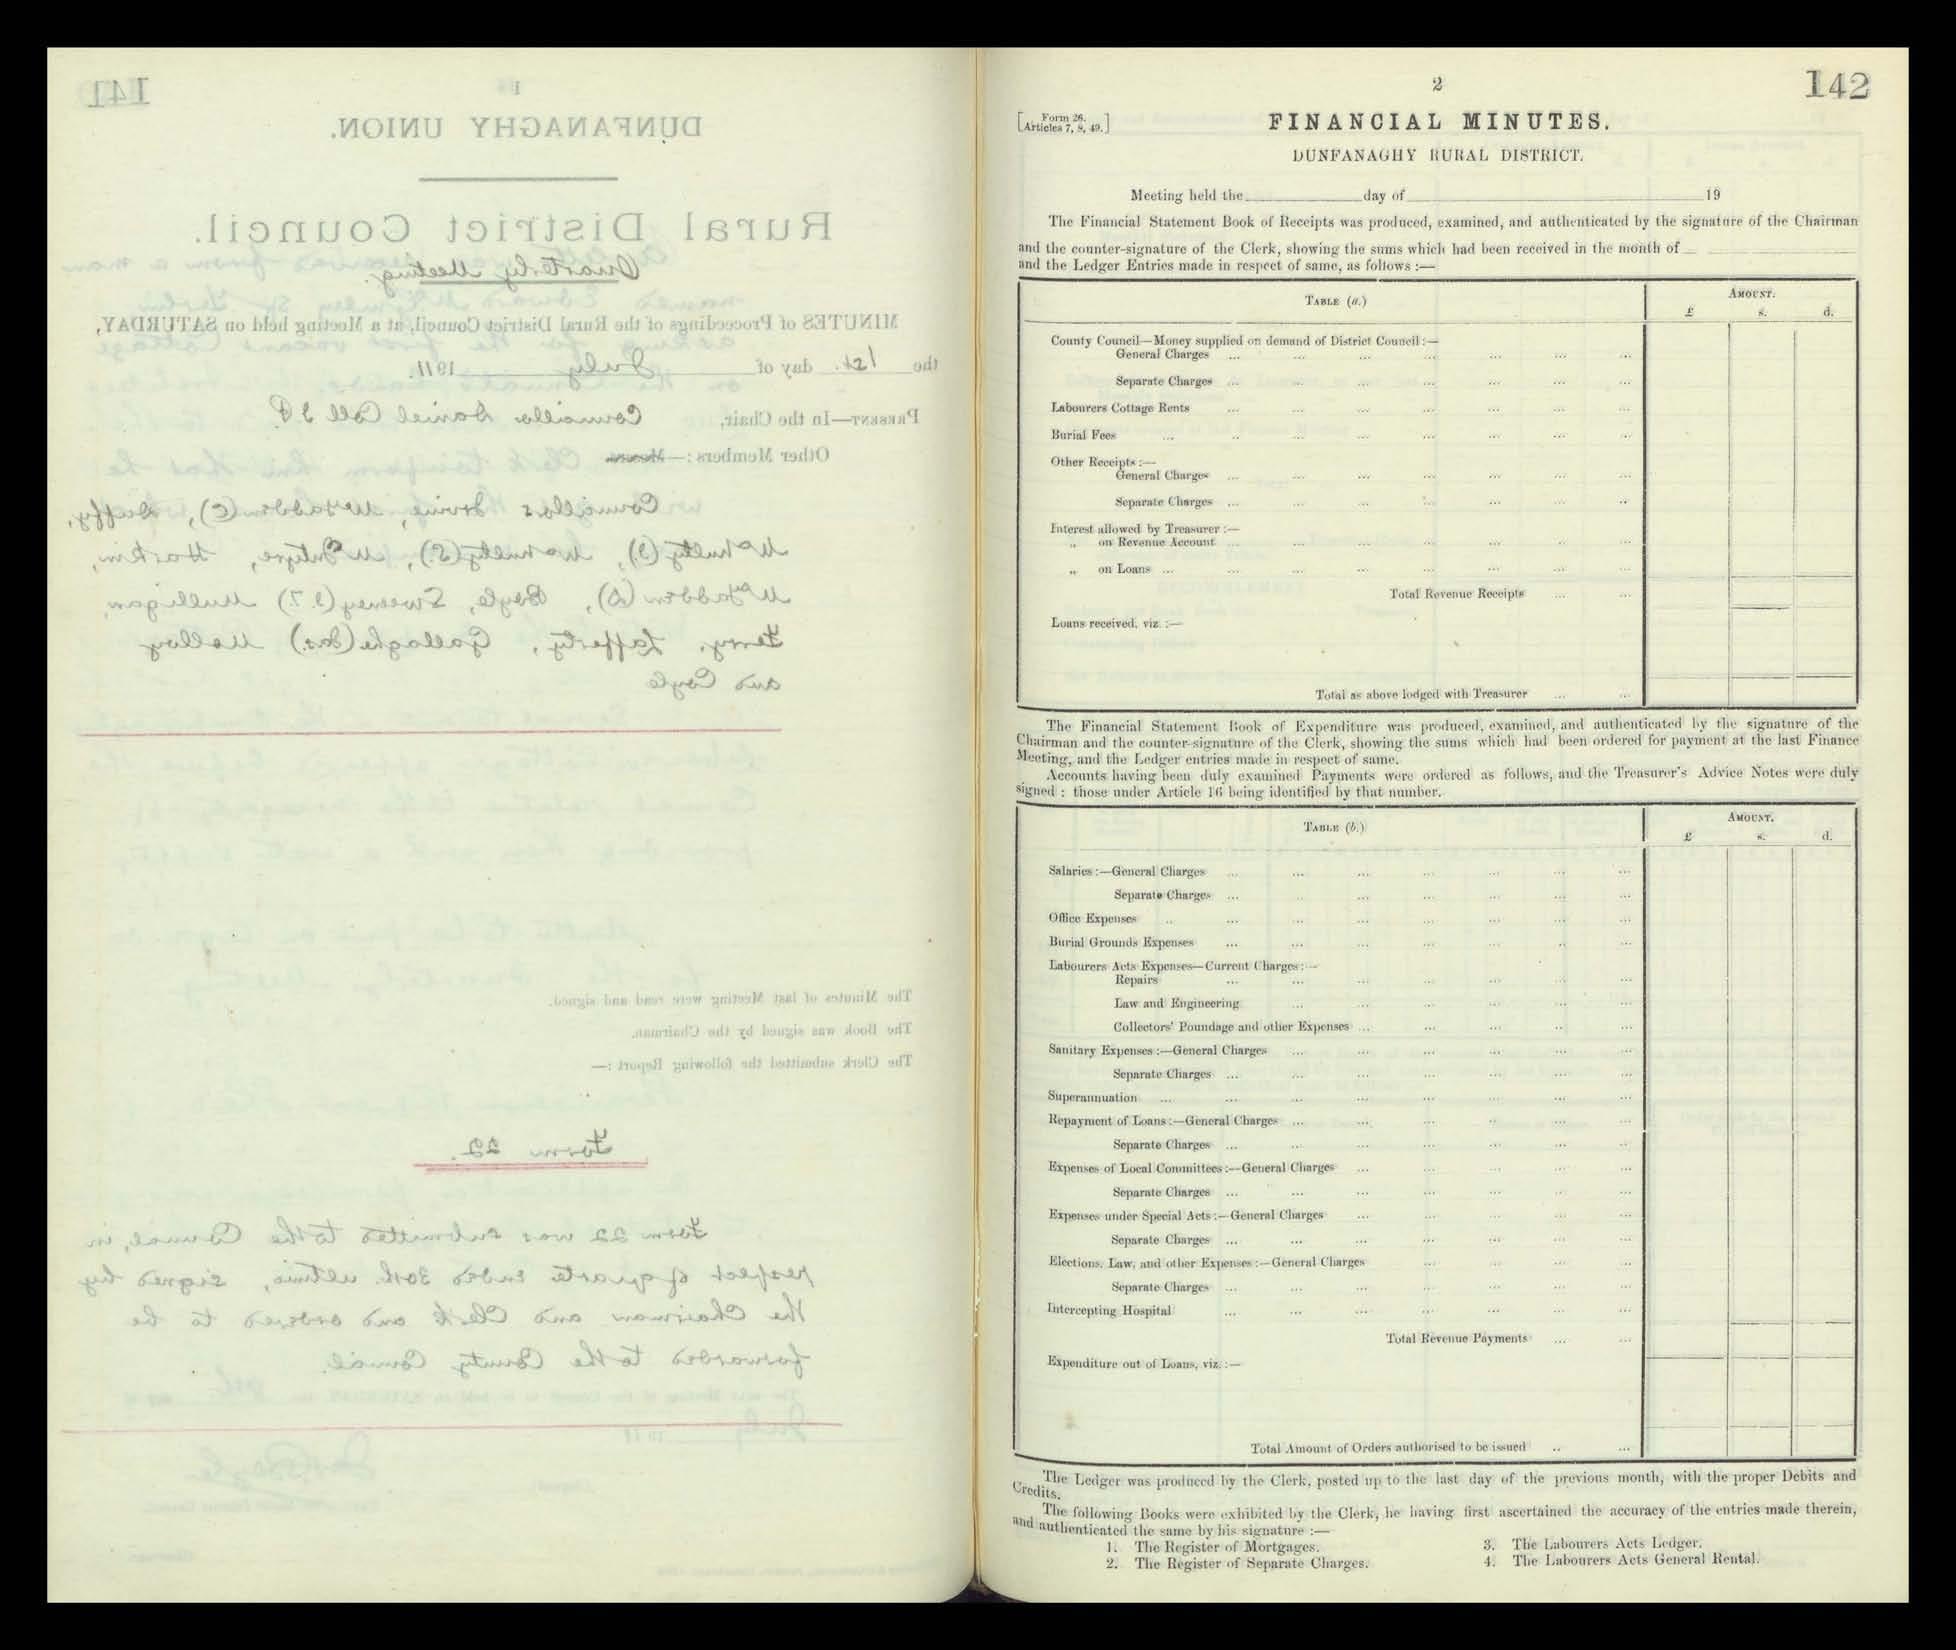 141
1
DUNFANAGHY UNION.
Rural District Council.
Quarterly Meeting
MINUTES of Proceedings of the Rural District Council, at a Meeting held on SATURDAY,
the 1st. day of July 1911.
PRESENT—In the Chair, Councillor Daniel Coll J P.
Other Members:—
Councillors Irvine, McFadden (C), Duffy,
McNulty (J), McNulty (S), McIntyre, Harkin,
McFadden (D), Boyle, Sweeney (J. T.) Mulligan,
Ferry, Lafferty, Gallagher (Jas.) Molloy
and Coyle
The Minutes of last Meeting were read and signed.
The Book was signed by the Chairman.
The Clerk submitted the following Report :—
Form 22.
Form 22 was submitted to the Council, in
respect of quarter ended 30th. ultimo, signed by
the Chairman and Clerk and ordered to be
forwarded to the County Council.
2
142
[Form 26.
Articles 7, 8, 49.]
FINANCIAL MINUTES.
DUNFANAGHY RURAL DISTRICT.
Meeting held the day of 19
The Financial Statement Book of Receipts was produced, examined, and authenticated by the signature of the Chairman
and the counter-signature of the Clerk, showing the sums which had been received in the month of
and the Ledger Entries made in respect of same, as follows :—
TABLE (a.) AMOUNT.
£ s. d.
County Council—Money supplied on demand of District Council :—
General Charges ... ... ... ... ... ... ...
Separate Charges ... ... ... ... ... ... ...
Labourers Cottage Rents ... ... ... ... ... ... ...
Burial Fees ... ... ... ... ... ... ... ...
Other Receipts :—
General Charges ... ... ... ... ... ... ...
Separate Charges ... ... ... ... ... ... ...
Interest allowed by Treasurer :—
„ on Revenue Account ... ... ... ... ... ... ...
„ on Loans ... ... ... ... ... ... ... ...
Total Revenue Receipts ... ...
Loans received, viz. :—
Total as above lodged with Treasurer ... ...
The Financial Statement Book of Expenditure was produced, examined, and authenticated by the signature of the
Chairman and the counter-signature of the Clerk, showing the sums which had been ordered for payment at the last Finance
Meeting, and the Ledger entries made in respect of same.
Accounts having been duly examined Payments were ordered as follows, and the Treasurer's Advice Notes were duly
signed : those under Article 16 being identified by that number.
TABLE (b.) AMOUNT.
£ s. d.
Salaries :—General Charges ... ... ... ... ... ... ...
Separate Charges ... ... ... ... ... ... ...
Office Expenses ... ... ... ... ... ... ... ...
Burial Grounds Expenses ... ... ... ... ... ... ...
Labourers Acts Expenses—Current Charges :—
Repairs ... ... ... ... ... ... ...
Law and Engineering ... ... ... ... ... ...
Collectors' Poundage and other Expenses ... ... ... ... ...
Sanitary Expenses :—General Charges ... ... ... ... ... ...
Separate Charges ... ... ... ... ... ... ...
Superannuation ... ... ... ... ... ... ... ...
Repayment of Loans :—General Charges ... ... ... ... ... ...
Separate Charges ... ... ... ... ... ... ...
Expenses of Local Committees :—General Charges ... ... ... ... ...
Separate Charges ... ... ... ... ... ... ...
Expenses under Special Acts :—General Charges ... ... ... ... ...
Separate Charges ... ... ... ... ... ... ...
Elections, Law, and other Expenses :—General Charges ... ... ... ...
Separate Charges ... ... ... ... ... ... ...
Intercepting Hospital ... ... ... ... ... ... ...
Total Revenue Payments ... ...
Expenditure out of Loans, viz. :—
Total Amount of Orders authorised to be issued ... ...
The Ledger was produced by the Clerk, posted up to the last day of the previous month, with the proper Debits and
Credits.
The following Books were exhibited by the Clerk, he having first ascertained the accuracy of the entries made therein,
and authenticated the same by his signature :—
1. The Register of Mortgages. 3. The Labourers Acts Ledger.
2. The Register of Separate Charges. 4. The Labourers Acts General Rental.